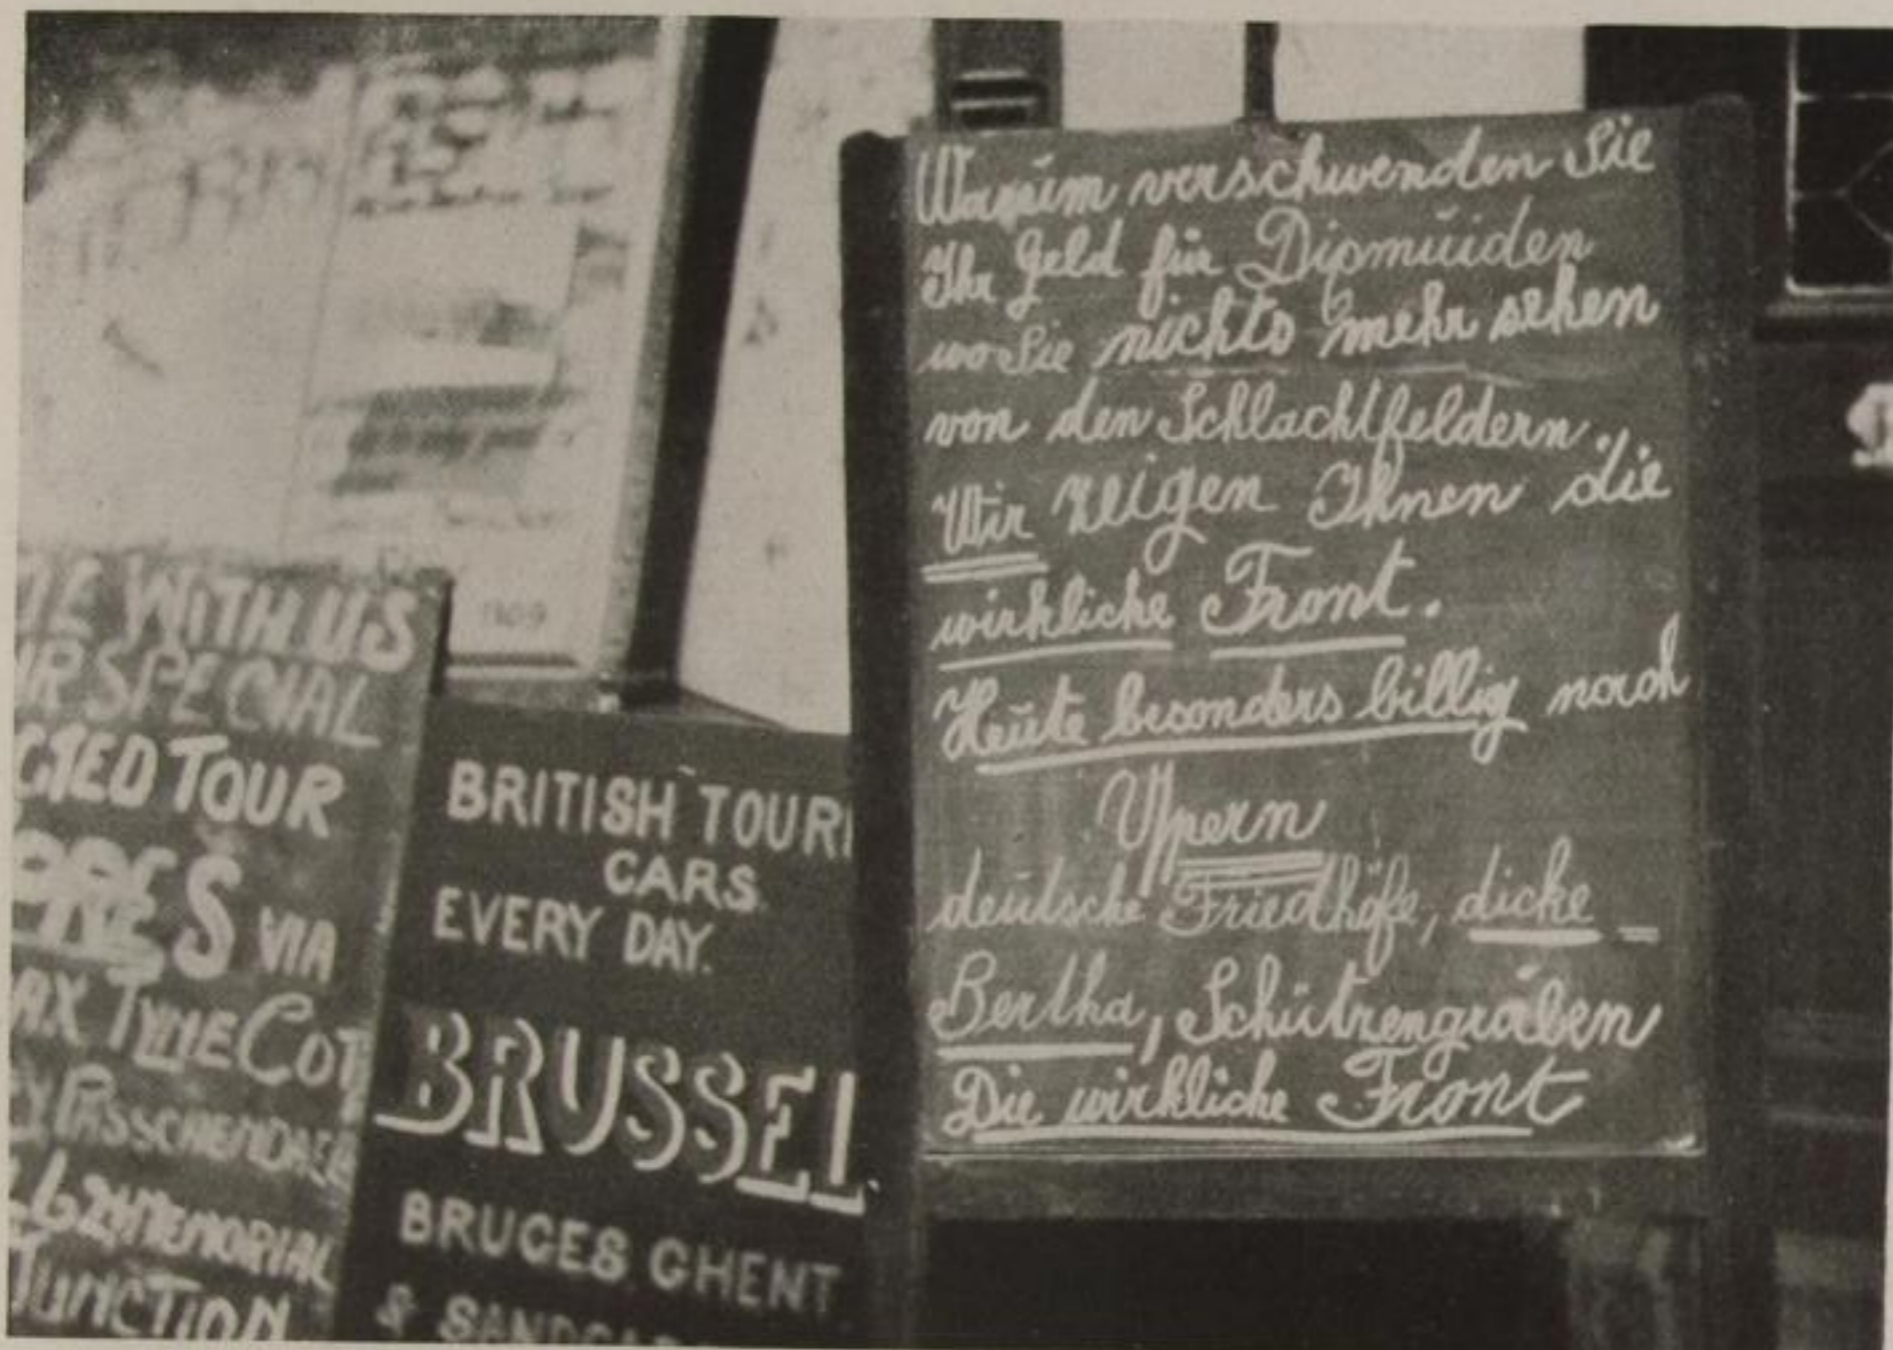 WITH US
SPECIAL
TOUR
VIA
TYNE COT
PASSCHENDAELE
MEMORIAL
JUNCTION
BRITISH TOURI
CARS
EVERY DAY.
BRUSSEL
BRUGES. GHENT
&
Warum verschwenden Sie
Ihr Geld für Dipmuiden
wo Sie nichts mehr sehen
von den Schlachtfeldern.
Wir zeigen Ihnen die
wirkliche Front.
Heute besonders billig nach
Ypern
deutsche Friedhöfe, dicke =
Bertha, Schützengräben
Die wirkliche Front